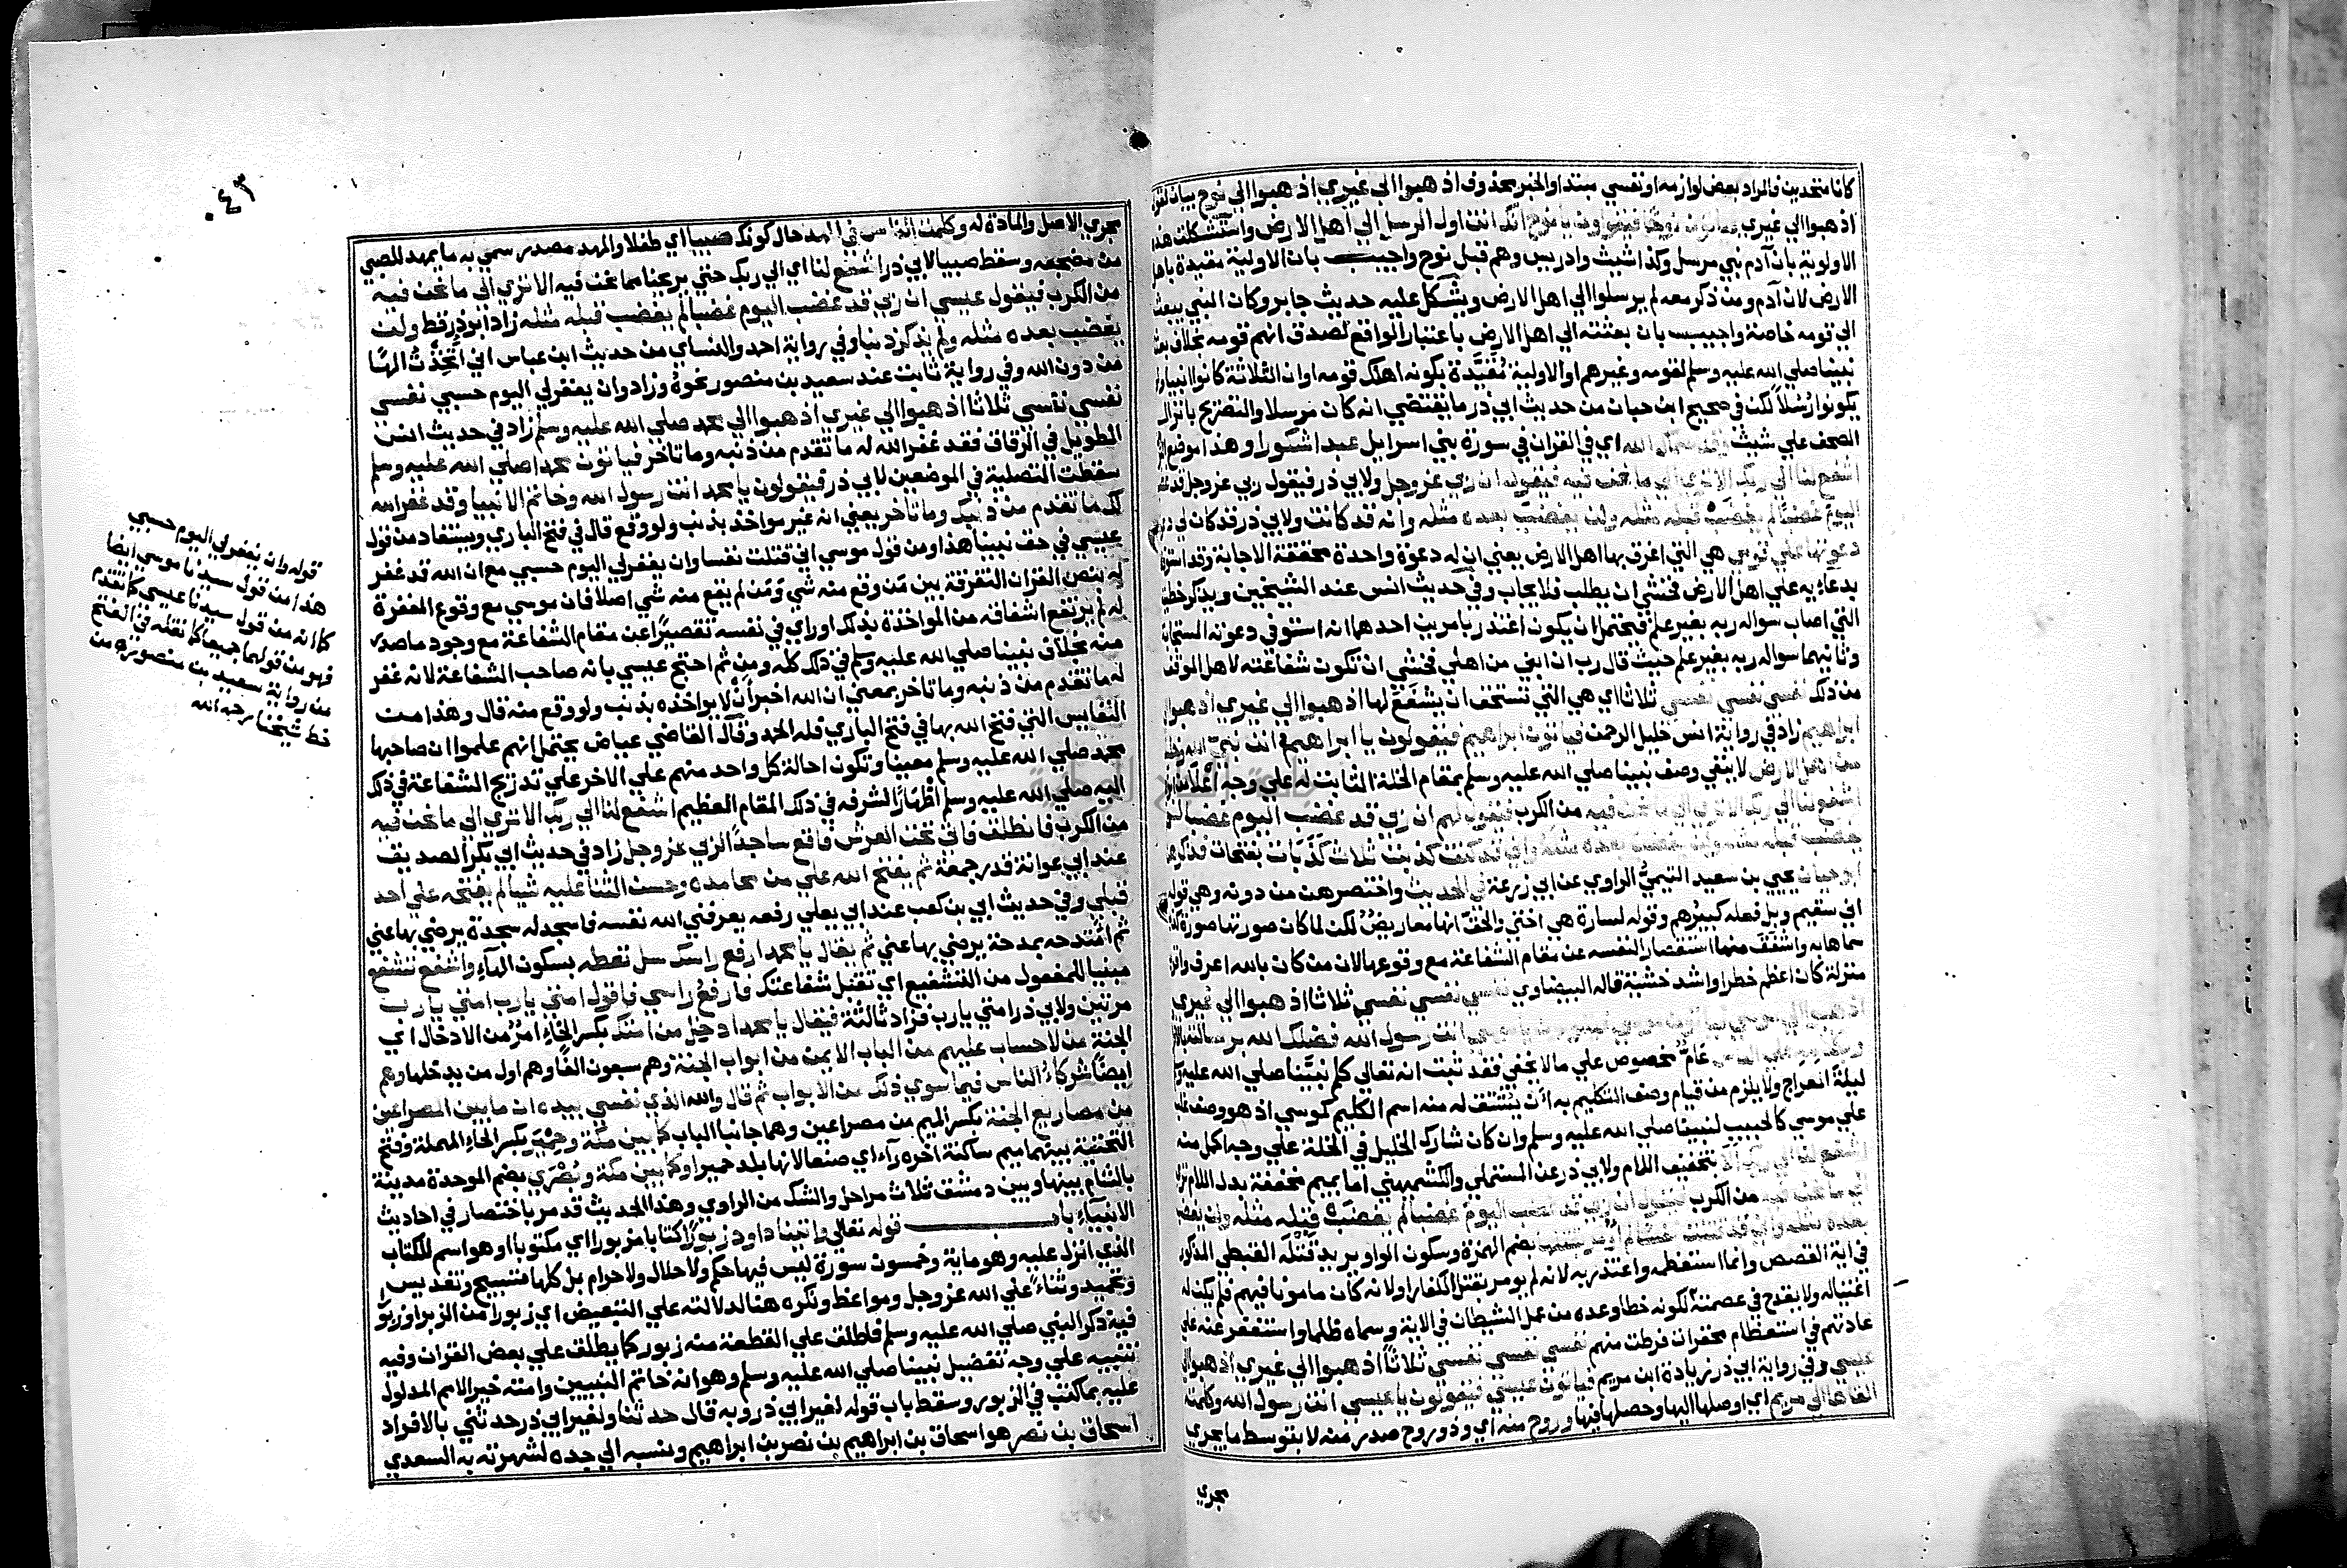 كانا متحدين فالمراد بعض لوازمه او نفسي مبتدا والخبر محذوف اذهبوا الي غيري اذهبوا الي نوح بيان لقوله
اذهبوا الي غيري فياتون نوحا فيقولون يا نوح انك انت اول الرسل الي اهل الارض واستشكلت هذه
الاولوية بان آدم نبي مرسل وكذا شيث وادريس وهم قبل نوح واجيب بان الاولية مقيدة باهل
الارض لان آدم ومن ذكر معه لم يرسلوا الي اهل الارض ويشكل عليه حديث جابر وكان النبي يبعث
الي قومه خاصة واجيب بان بعثته الي اهل الارض باعتبار الواقع لصدق انهم قومه بخلاف بعثة
نبينا صلي الله عليه وسلم لقومه وغيرهم او الاولية مُقَيَّدة بكونه اهلك قومه او ان الثلاثة كانوا انبيا ولم
يكونوا رُسُلاً لكن في صحيح ابن حبان من حديث ابي ذر ما يقتضي انه كان مرسلا والتصريح بانزال
الصحف علي شيث وقد سماك الله اي في القران في سورة بني اسرايل عبدا شكورا وهذا موضع
اشفع لنا الي ربك الا تري الي ما نحن فيه فيقول ان ربي عز وجل ولابي ذر فيقول ربي عز وجل قد غضب
اليوم غضبا لم يغضب قبله مثله ولن يغضب بعده مثله وانه قد كانت ولابي ذر قد كان لي
دعوتها علي قومي هي التي اغرق بها اهل الارض يعني ان له دعوة واحدة محققة الاجابة وقد استوفاها
بدعايه علي اهل الارض فخشي ان يطلب فلا يجاب وفي حديث انس عند الشيخين ويذكر خطيئته
التي اصاب سواله ربه بغير علم فيحتمل ان يكون اعتذر بامرين احدهما انه استوفي دعوته المستجابة
وثانيهما سواله ربه بغير علم حيث قال رب ان ابني من اهلي فخشي ان تكون شفاعته لاهل الموقف
من ذلك نفسي نفسي نفسي ثلاثا اي هي التي تستحق ان يشفع لها اذهبوا الي غيري اذهبوا الي
ابراهيم زاد في رواية انس خليل الرحمن فياتون ابراهيم فيقولون يا ابراهيم انت نبي الله وخليله
من اهل الارض لا ينفي وصف نبينا صلي الله عليه وسلم بمقام الخلة الثابت له علي وجه اعلا من
اشفع لنا الي ربك الا تري الي ما نحن فيه من الكرب فيقول لهم ان ربي قد غضب اليوم غضبا لم
يغضب قبله مثله ولن يغضب بعده مثله واني قد كنت كذبت ثلاث كَذَبَات بفتحات فذكرهن
ابو حيان يحيي بن سعيد التيمي الراوي عن ابي زرعة في الحديث واختصرهن من دونه وهي قوله
اني سقيم وبل فعله كبيرهم وقوله لسارة هي اختي والحق انها معاريض لكن لما كان صورتها صورة
سماها به واشفق منها استقصارا لنفسه عن مقام الشفاعة مع وقوعها لان من كان بالله اعرف واقرب
منزلة كان اعظم خطرا واشد خشية قاله البيضاوي نفسي نفسي نفسي ثلاثا اذهبوا الي غيري
اذهبوا الي موسي فياتون موسي فيقولون يا موسي انت رسول الله فضلك الله برسالته
وبكلامه علي الناس عام مخصوص علي ما لا يخفي فقد ثبت انه تعالي كلم نبينا صلي الله عليه وسلم
ليلة المعراج ولا يلزم من قيام وصف التكليم به ان يُشتق له منه اسم الكليم كموسي اذ هو وصف غلب
علي موسي كالحبيب لنبينا صلي الله عليه وسلم وان كان شارك الخليل في الخلة علي وجه اكمل منه
اشفع لنا الي ربك الا بتخفيف اللام ولابي ذر عن المستملي والكشميهني اما بميم مخففة بدل اللام تري
الي ما نحن فيه من الكرب فيقول ان ربي قد غضب اليوم غضبا لم يغضب قبله مثله ولن يغضب
بعده مثله واني قد قتلت نفسا لم اومر بقتلها بضم الهمزة وسكون الواو يريد قتله القبطي المذكور
في اية القصص وانما استعظمه واعتذر به لانه لم يومر بقتل الكفار او لانه كان مامونا فيهم فلم يكن له
اغتياله ولا يقدح في عصمته لكونه خطا وعده من عمل الشيطان في الاية وسماه ظلما واستغفر عنه علي
عادتهم في استعظام محقرات فرطت منهم نفسي نفسي نفسي ثلاثا اذهبوا الي غيري اذهبوا الي
عيسي وفي رواية ابي ذر زيادة ابن مريم فياتون عيسي فيقولون يا عيسي انت رسول الله وكلمته
القاها الي مريم اي اوصلها اليها وحصلها فيها وروح منه اي وذو روح صدر منه لا بتوسط ما يجري
مجري
٤٣٠
مجري الاصل والمادة له وكلمت الناس في المهد حال كونك صبيا اي طفلا والمهد مصدر سمي به ما يمهد للصبي
من مضجعه وسقط صبيا لابي ذر اشفع لنا اي الي ربك حتي يرحنا مما نحن فيه الا تري الي ما نحن فيه
من الكرب فيقول عيسي ان ربي قد غضب اليوم غضبا لم يغضب قبله مثله زاد ابو ذر قط ولن
يغضب بعده مثله ولم يذكر ذنبا وفي رواية احمد والنساي من حديث ابن عباس اني اتُّخِذْتُ الهًا
من دون الله وفي رواية ثابت عند سعيد بن منصور نحوه وزاد وان يغفر لي اليوم حسبي نفسي
نفسي نفسي ثلاثا اذهبوا الي غيري اذهبوا الي محمد صلي الله عليه وسلم زاد في حديث انس
الطويل في الرقاق فقد غفر الله له ما تقدم من ذنبه وما تاخر فياتون محمدا صلي الله عليه وسلم
سقطت التصلية في الموضعين لابي ذر فيقولون يا محمد انت رسول الله وخاتم الانبيا وقد غفر الله
لك ما تقدم من ذنبك وما تاخر يعني انه غير مواخذ بذنب ولو وقع قال في فتح الباري ويستفاد من قول
عيسي في حق نبينا هذا ومن قول موسي اني قتلت نفسا وان يغفر لي اليوم حسبي مع ان الله قد غفر
له بنص القران التفرقة بين من وقع منه شي ومن لم يقع منه شي اصلا فان موسي مع وقوع المغفرة
له لم يرتفع اشفاقه من المواخذة بذلك او راي في نفسه تقصيرا عن مقام الشفاعة مع وجود ما صدر
منه بخلاف نبينا صلي الله عليه وسلم في ذلك كله ومن ثم احتج عيسي بانه صاحب الشفاعة لانه غفر
له ما تقدم من ذنبه وما تاخر بمعني ان الله اخبر ان لا يواخذه بذنب ولو وقع منه قال وهذا من
النفايس التي فتح الله بها في فتح الباري فله الحمد وقال القاضي عياض يحتمل انهم علموا ان صاحبها
محمد صلي الله عليه وسلم معينا وتكون احالة كل واحد منهم علي الاخر علي تدريج الشفاعة في ذلك
اليه صلي الله عليه وسلم اظهارًا لشرفه في ذلك المقام العظيم اشفع لنا الي ربك الا تري الي ما نحن فيه
من الكرب فانطلق فاتي تحت العرش فاقع ساجدًا لربي عز وجل زاد في حديث ابي بكر الصديق
عند ابي عوانة قدر جمعة ثم يفتح الله علي من محامده وحسن الثنا عليه شيا لم يفتحه علي احد
قبلي وفي حديث ابي بن كعب عند ابي يعلي رفعه يعرفني الله نفسه فاسجد له سجدة يرضي بها عني
ثم امتدحه بمدحة يرضي بها عني ثم يقال يا محمد ارفع راسك سل تعطه بسكون الهاء واشفع تشفع
مبنيا للمفعول من التشفيع اي تقبل شفاعتك فارفع راسي فاقول امتي يارب امتي يارب
مرتين ولابي ذر امتي يارب فزاد ثالثة فيقال يا محمد ادخل من امتك بكسر الخاء امرٌ من الادخال اي
الجنة من لا حساب عليهم من الباب الايمن من ابواب الجنة وهم سبعون الفًا وهم اول من يدخلها وهم
ايضًا شركاء الناس فيما سوي ذلك من الابواب ثم قال والله الذي نفسي بيده ان ما بين المصراعين
من مصاريع الجنة بكسر الميم من مصراعين وهما جانبا الباب كما بين مكة وحِمْيَر بكسر الحاء المهملة وفتح
التحتية بينهما ميم ساكنة اخره رآء اي صنعا لانها بلد حمير او كما بين مكة وبُصْري بضم الموحدة مدينة
بالشام بينها وبين دمشق ثلاث مراحل والشك من الراوي وهذا الحديث قد مر باختصار في احاديث
الانبيآء باب قوله تعالي واتينا داود زبورًا كتابا مزبورا اي مكتوبا او هو اسم للكتاب
الذي انزل عليه وهو ماية وخمسون سورة ليس فيها حكم ولا حلال ولا حرام بل كلها تسبيح وتقديس
وتحميد وثناء علي الله عز وجل ومواعظ ونكره هنا لدلالته علي التبعيض اي زبورا من الزبر او زبورًا
فيه ذكر النبي صلي الله عليه وسلم فاطلق علي القطعة منه زبور كما يطلق علي بعض القران وفيه
تنبيه علي وجه تفضيل نبينا صلي الله عليه وسلم وهو انه خاتم النبيين وامته خير الامم المدلول
عليه بما كتب في الزبور وسقط باب قوله لغير ابي ذر وبه قال حدثنا ولغير ابي ذر حدثني بالافراد
اسحاق بن نصر هو اسحاق بن ابراهيم بن نصر بن ابراهيم ونسبه الي جده لشهرته به السعدي
قوله وان يغفر لي اليوم حسبي
هذا من قول سيدنا موسي ايضا
كما انه من قول سيدنا عيسي كما تقدم
فهو من قولهما جميعا كما نقله في الفتح
من رواية سعيد بن منصور
خط شيخنا رحمه الله